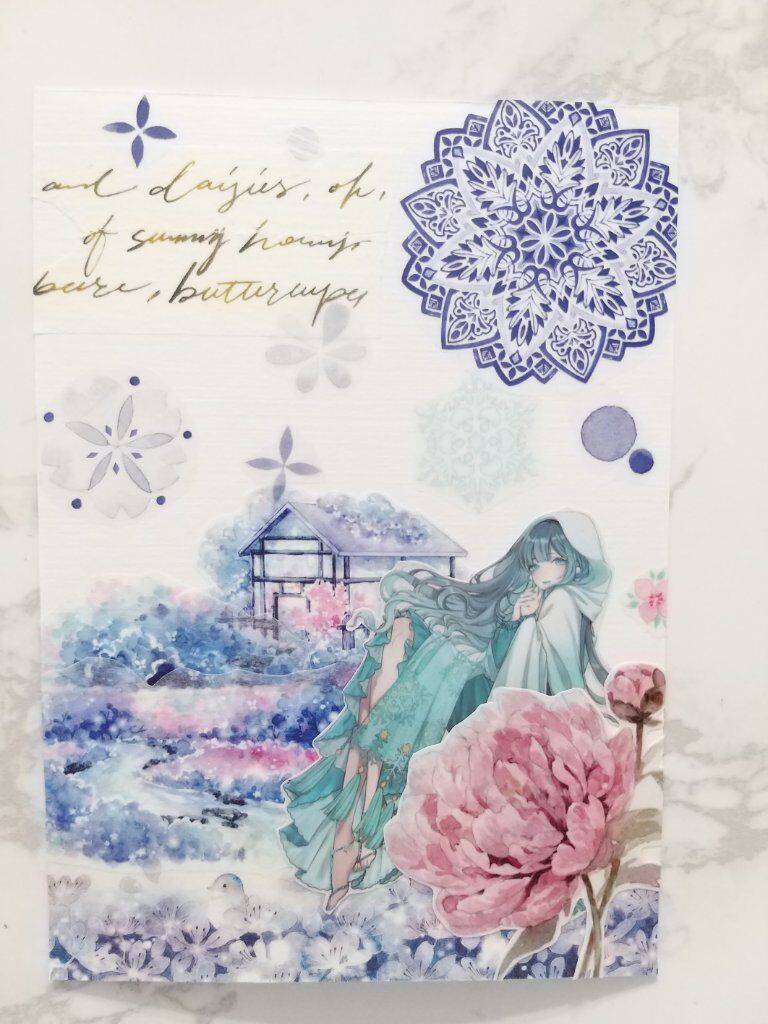 and daisies, oh,
of sunny hours
bere, buttercups